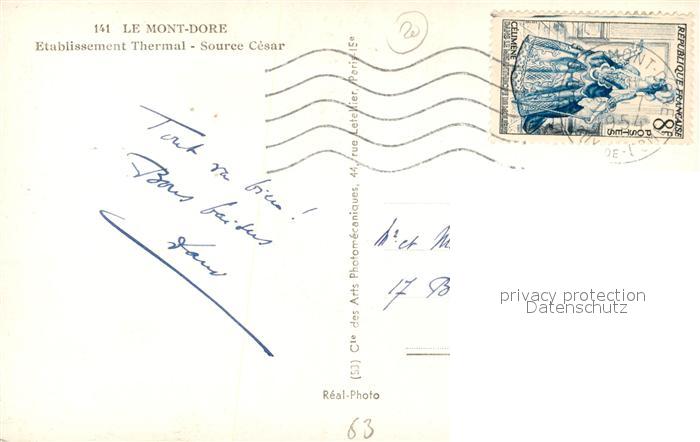 141 LE MONT-DORE
Etablissement Thermal - Source César
20
REPUBLIQUE FRANÇAISE
POSTES
8F
CELIMENE
1954
Tout va bien!
Bons baisers
(53) Cie des Arts Photomécaniques, 44, rue Letellier, Paris-15e
Mr et M
17 B
privacy protection
Datenschutz
Réal-Photo
63